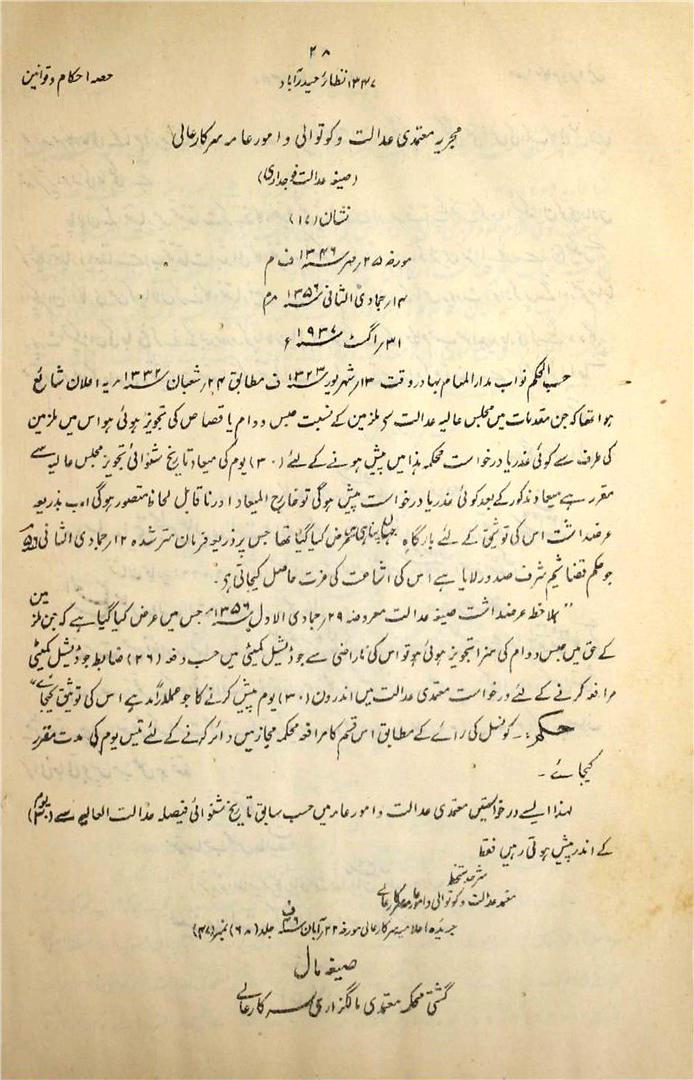 ۲۸
۱۳۴۷ نظائر حیدرآباد
حصہ احکام وقوانین
مجریہ معتمدی عدالت وکوتوالی وامور عامہ سرکارعالی
(صیغہ عدالت فوجداری)
نشان (۱۷)
مورخہ ۲۵ مہر ۱۳۴۶ ف م
۱۳ جمادی الثانی ۱۳۵۶ م
۳۱ اگسٹ ۱۹۳۷ ء
حسب الحکم نواب مدارالمہام بہادر وقت ۱۳ شہریور ۱۳۲۳ ف مطابق ۲۴ شعبان ۱۳۳۲ یہ اعلان شائع
ہوا تھا کہ جن مقدمات میں مجلس عالیہ عدالت سے ملزمین کے نسبت حبس دوام یا قصاص کی تجویز ہوئی ہو اس میں ملزمین
کی طرف سے کوئی عذر یا درخواست محکمہ ہذا میں پیش ہونے کے لئے (۳۰) یوم کی میعاد تاریخ شنوائی تجویز مجلس عالیہ سے
مقرر ہے میعاد مذکور کے بعد کوئی عذر یا درخواست پیش ہوگی تو خارج المیعاد اور ناقابل لحاظ متصور ہوگی اب بذریعہ
عرضداشت اس کی توثیق کے لئے بارگاہ جہاں پناہی میں عرض کیا گیا تھا جس پر ذریعہ فرمان مترشدہ ۱۲ جمادی الثانی ۵۶
جو حکم قضا شیم شرف صدور لایا ہے اس کی اشاعت کی عزت حاصل کیجاتی ہے۔
"بملاحظہ عرضداشت صیغہ عدالت معروضہ ۲۹ جمادی الاول ۱۳۵۶ جس میں عرض کیا گیا ہے کہ جن ملزمین
کے حق میں حبس دوام کی سزا تجویز ہوئی ہو تو اس کی ناراضی سے جوڈیشل کمیٹی میں حسب دفعہ (۲۶) ضابطہ جوڈیشل کمیٹی
مرافعہ کرنے کے لئے درخواست معتمدی عدالت میں اندرون (۳۰) یوم پیش کرنے کا جو عملدرآمد ہے اس کی توثیق کیجائے"
حکم:۔ کونسل کی رائے کے مطابق اس قسم کا مرافعہ محکمہ مجاز میں دائر کرنے کے لئے تیس یوم کی مدت مقرر
کیجائے ۔
لہذا ایسے درخواستیں معتمدی عدالت وامور عامہ میں حسب سابق تاریخ شنوائی فیصلہ عدالت العالیہ سے (۳۰) یوم
کے اندر پیش ہوتی رہیں فقط
شرحدستخط
معتمد عدالت وکوتوالی وامور عامہ سرکارعالی
جریدہ اعلامیہ سرکارعالی مورخہ ۲۲ آبان ۴۶ ف جلد (۶۸) نمبر (۴۷)
صیغہ مال
گشتی محکمہ معتمدی مالگزاری سرکارعالی